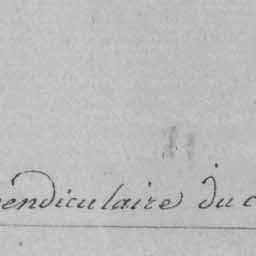 endiculaire du c